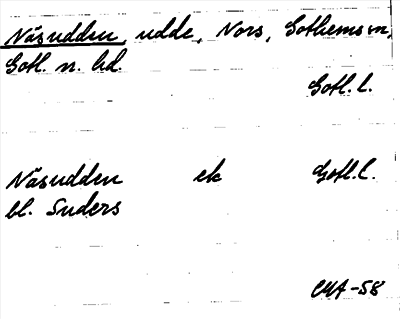 Näsudden, udde, Nors, Gothems sn,
Gotl. n. hd.
Gotl. l.
Näsudden ek Gotl. l.
bl. Suders
CMA-58